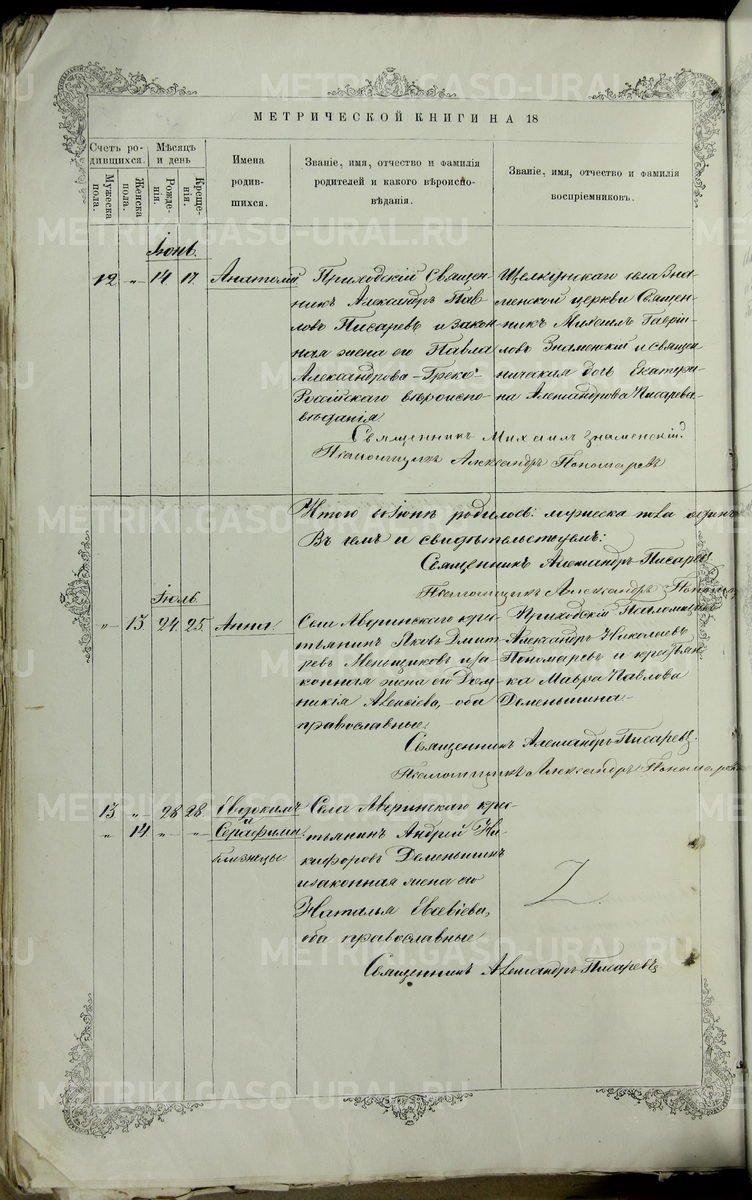 МЕТРИЧЕСКОЙ КНИГИ НА 18
Счетъ ро-
дившихся.
Мѣсяцъ
и день
Имена
родив-
шихся.
Званіе, имя, отчество и фамилія
родителей и какого вѣроиспо-
вѣданія.
Званіе, имя, отчество и фамилія
воспріемниковъ.
Мужеска
пола.
Женска
пола.
Рожде-
нія.
Креще-
нія.
Іюнь.
12 „ 14 17. Анатолій
Приходскій Священ-
никъ Александръ Пав-
ловъ Писаревъ и закон-
ная жена его Павла
Александрова – Греко-
Россійскаго вѣроиспо-
вѣданія.
Щелкунскаго села Зна-
менской церкви Священ-
никъ Михаилъ Гаврии-
ловъ Знаменскій и священ-
ническая дочь Екатери-
на Александрова Писарева.
Священникъ Михаилъ Знаменскій.
Псаломщикъ Александръ Пономаревъ
Итого въ Іюнѣ родилось: мужеска пола одинъ
Въ чемъ и свидѣтельствуемъ:
Священникъ Александръ Писаревъ
Псаломщикъ Александръ Поном
Іюль.
„ 13 24. 25. Анна.
Села Аверинскаго кре-
стьянинъ Яковъ Дмит-
ревъ Меньщиковъ и за-
конная жена его Дом-
никія Алексіева, – оба
православные.
Приходскій Псаломщикъ
Александръ Николаевъ
Пономаревъ и крестьян-
ка Мавра Павлова
Деменьшина –
Священникъ Александръ Писаревъ.
Псаломщикъ Александръ Пономаревъ
13 „ 28 28. Евдокимъ
и
„ 14 „ „ Серафима
близнецы
Села Аверинскаго кре-
стьянинъ Андрей Ни-
кифоровъ Деменьшинъ
и законная жена его
Наталья Евсевіева,
оба православные
Священникъ Александръ Писаревъ
METRIKI.GASO-URAL.RU